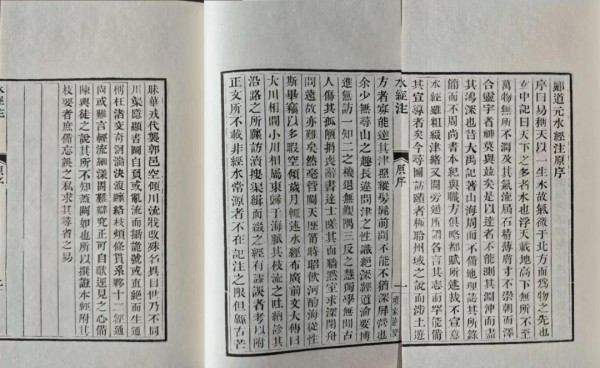 酈道元水經注原序
序曰易稱天以一生水故氣微于北方而爲物之先也
玄中記曰天下之多者水也浮天載地高下無所不至
萬物無所不潤及其氣流屆石精薄膚寸不崇朝而澤
合靈宇者神莫與竝矣是以達者不能測其淵沖而盡
其鴻深也昔大禹記著山海周而不備地理誌其所錄
簡而不周尚書本紀與職方俱略都賦所述裁不宣意
水經雖粗綴津緒又闕旁通所謂各言其志而罕能備
其宣導者矣今尋圖訪賾者極聆州域之說而涉土遊
水經注
原序
一
方者寡能達其津照縱髣髴前聞不能不猶深屏營也
余少無尋山之趣長違問津之性識絕深經道淪要博
進無訪一知二之機退無觀隅三反之慧獨學無聞古
人傷其孤陋捐喪辭書達士嗟其面牆默室求深閉舟
問遠故亦難矣然毫管闚天歷筩時昭飲河酌海從性
斯畢竊以多暇空傾歲月輒述水經布廣前文大傳曰
大川相間小川相屬東歸于海脈其枝流之吐納診其
沿路之所躔訪瀆搜渠緝而綴之經有謬誤者考以附
正文所不載非經水常源者不在記注之限但緜古芒
水經注
原序
昧華戎代襲郭邑空傾川流戕改殊名異目世乃不同
川渠隱顯書圖自負或亂流而攝詭號或直絕而生通
稱枉渚交奇洄湍決澓躔絡枝煩條貫系夥十二經通
尚或難言輕流細漾固難辯究正可自獻逕見之心備
陳輿徒之說其所不知蓋闕如也所以撰證本經附其
枝要者庶備忘誤之私求其尋省之易